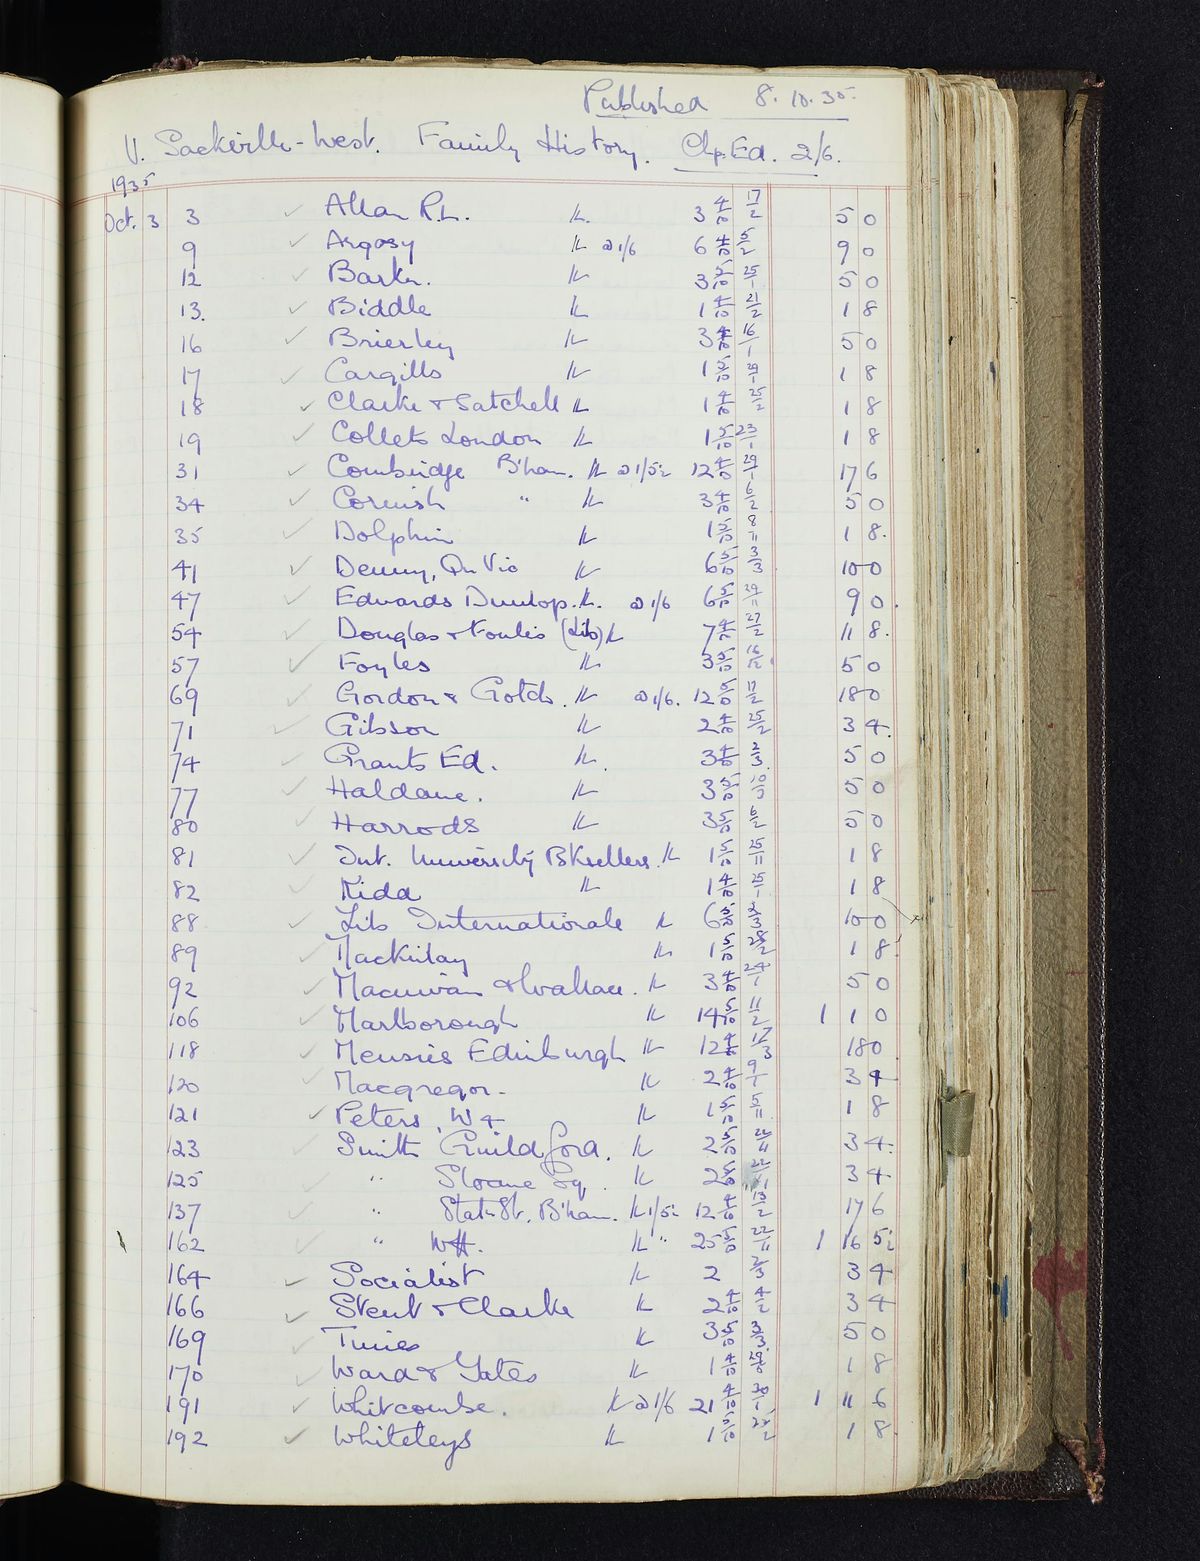 Published 8.10.35.
V. Sackville-West. Family History. Chp. Ed. 2/6.
1935
Oct. 3 3 ✓ Allan R.L. 3 4/10 17/2 5 0
9 ✓ Argosy @ 1/6 6 4/10 5/2 9 0
12 ✓ Barker. 3 5/10 25/1 5 0
13. ✓ Biddle 1 4/10 21/2 1 8
16 ✓ Brierley 3 4/10 16/1 5 0
17 ✓ Cargills 1 5/10 1 8
18 ✓ Clarke & Satchell 1 4/10 25/2 1 8
19 ✓ Collets London 1 5/10 23/1 1 8
31 ✓ Combridge B'ham. @ 1/5½ 12 4/10 29/1 17 6
34 ✓ Cornish " 3 4/10 6/2 5 0
35 ✓ Dolphin 1 5/10 8/11 1 8.
41 ✓ Denny, Qn Vic 6 5/10 3/3 10 0
47 ✓ Edwards Dunlop. @ 1/6 6 5/10 9 0.
54 ✓ Douglas & Foulis (Lib) 7 4/10 27/2 11 8.
57 ✓ Foyles 3 5/10 16/12 5 0
69 ✓ Gordon & Gotch. @ 1/6. 12 5/10 17/2 18 0
71 ✓ Gibson 2 4/10 25/2 3 4.
74 ✓ Grants Ed. 3 4/10 2/3 5 0
77 ✓ Haldane. 3 5/10 10/3 5 0
80 ✓ Harrods 3 5/10 6/2 5 0
81 ✓ Int. University Bksellers. 1 5/10 25/11 1 8
82 ✓ Kidd 1 4/10 1 8
88 ✓ Lib Internationale 6 5/10 10 0
89 ✓ Mackinlay 1 5/10 28/2 1 8
92 ✓ Macniven & Wallace. 3 4/10 24/1 5 0
106 ✓ Marlborough 14 5/10 11/2 1 1 0
118 ✓ Menzies Edinburgh 12 4/10 17/3 18 0
120 ✓ Macgregor. 2 4/10 9/1 3 4
121 ✓ Peters, W & 1 5/10 5/11 1 8
123 ✓ Smith Guildford. 2 5/10 22/11 3 4.
125 ✓ " Sloane Sq. 2 5/10 3 4
137 ✓ " State St. B'ham. 1/5½ 12 4/10 13/2 17 6
162 ✓ " WH. " 25 5/10 22/11 1 16 5½
164 ✓ Socialist 2 3 4
166 ✓ Stent & Clarke 2 4/10 4/2 3 4
169 ✓ Times 3 5/10 3/3 5 0
170 ✓ Ward & Yates 1 4/10 1 8
191 ✓ Whitcombe. @ 1/6 21 4/10 30/1 1 11 6
192 ✓ Whiteleys 1 5/10 1 8.